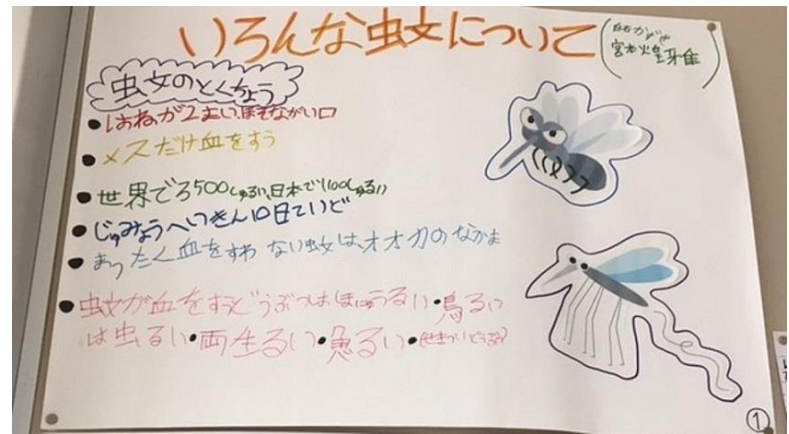 いろんな蚊について
宮本煌牙
蚊のとくちょう
●はねが2まい、ほそながい口
●メスだけ血をすう
●世界でろ500しゅるい、日本で100しゅるい
●じゅみょうへいきん10日ていど
●まったく血をすわない蚊は、オオカのなかま
●蚊が血をすうどうぶつはほにゅうるい・鳥るい
は虫るい・両生るい・魚るい・(せきついどうぶつ)
①